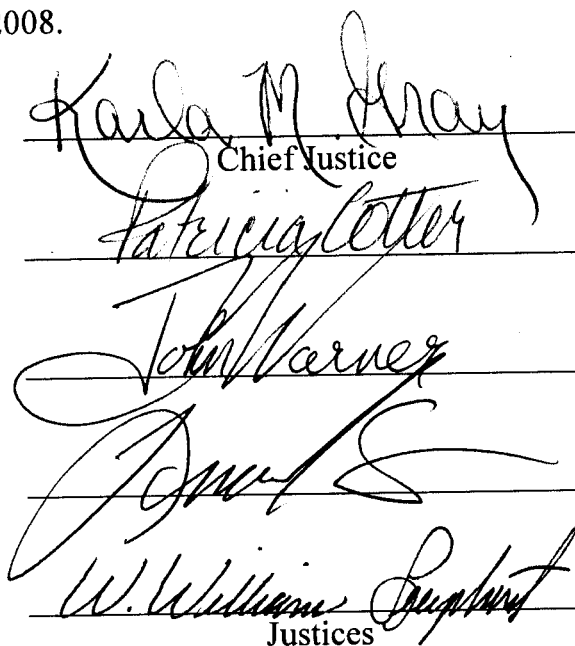 2008.
Karla M. Gray
Chief Justice
Patricia Cotter
John Warner
W. William Leaphart
Justices